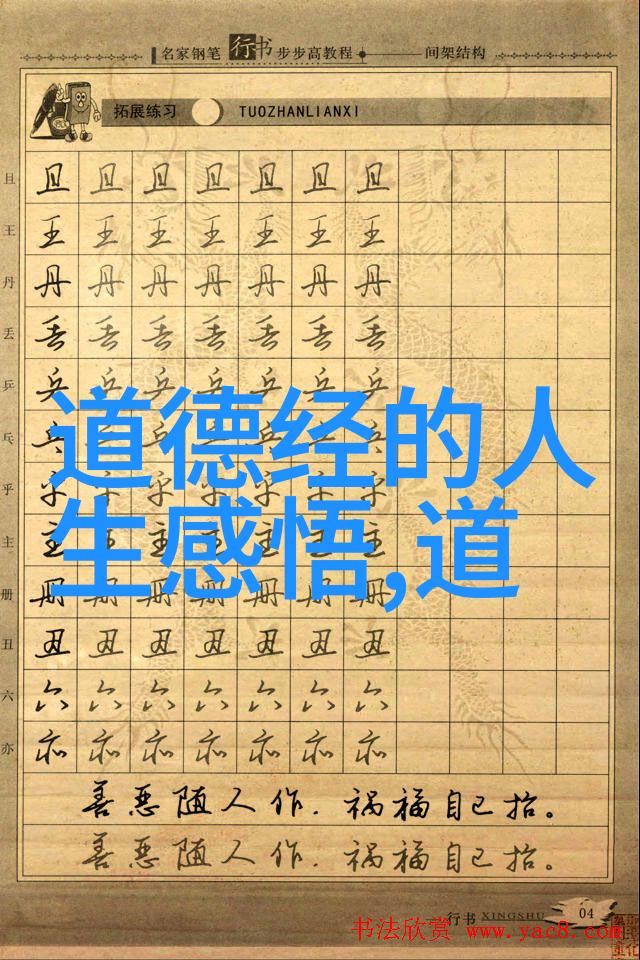 名家钢笔 行书 步步高教程 间架结构
拓展练习 TUOZHANLIANXI
且 且 且 且 且 且 且 且
王 王 王 王 王 王 王 王
丹 丹 丹 丹 丹 丹 丹 丹
丢 丢 丢 丢 丢 丢 丢 丢
乒 乒 乒 乒 乒 乒 乒 乒
道德经的人
乓 乓 乓 乓 乓 乓 乓 乓
乎 乎 乎 乎 乎 乎 乎 乎
生感悟,道
主 主 主 主 主 主 主 主
册 册 册 册 册 册 册 册
丑 丑 丑 丑 丑 丑 丑 丑
六 六 六 六 六 六 六 六
亦 亦 亦 亦 亦 亦 亦 亦
善恶随人作.祸福自己招。
善恶随人作.祸福自己招。
行书 XINGSHU 04
书法欣赏 www.yac8.com